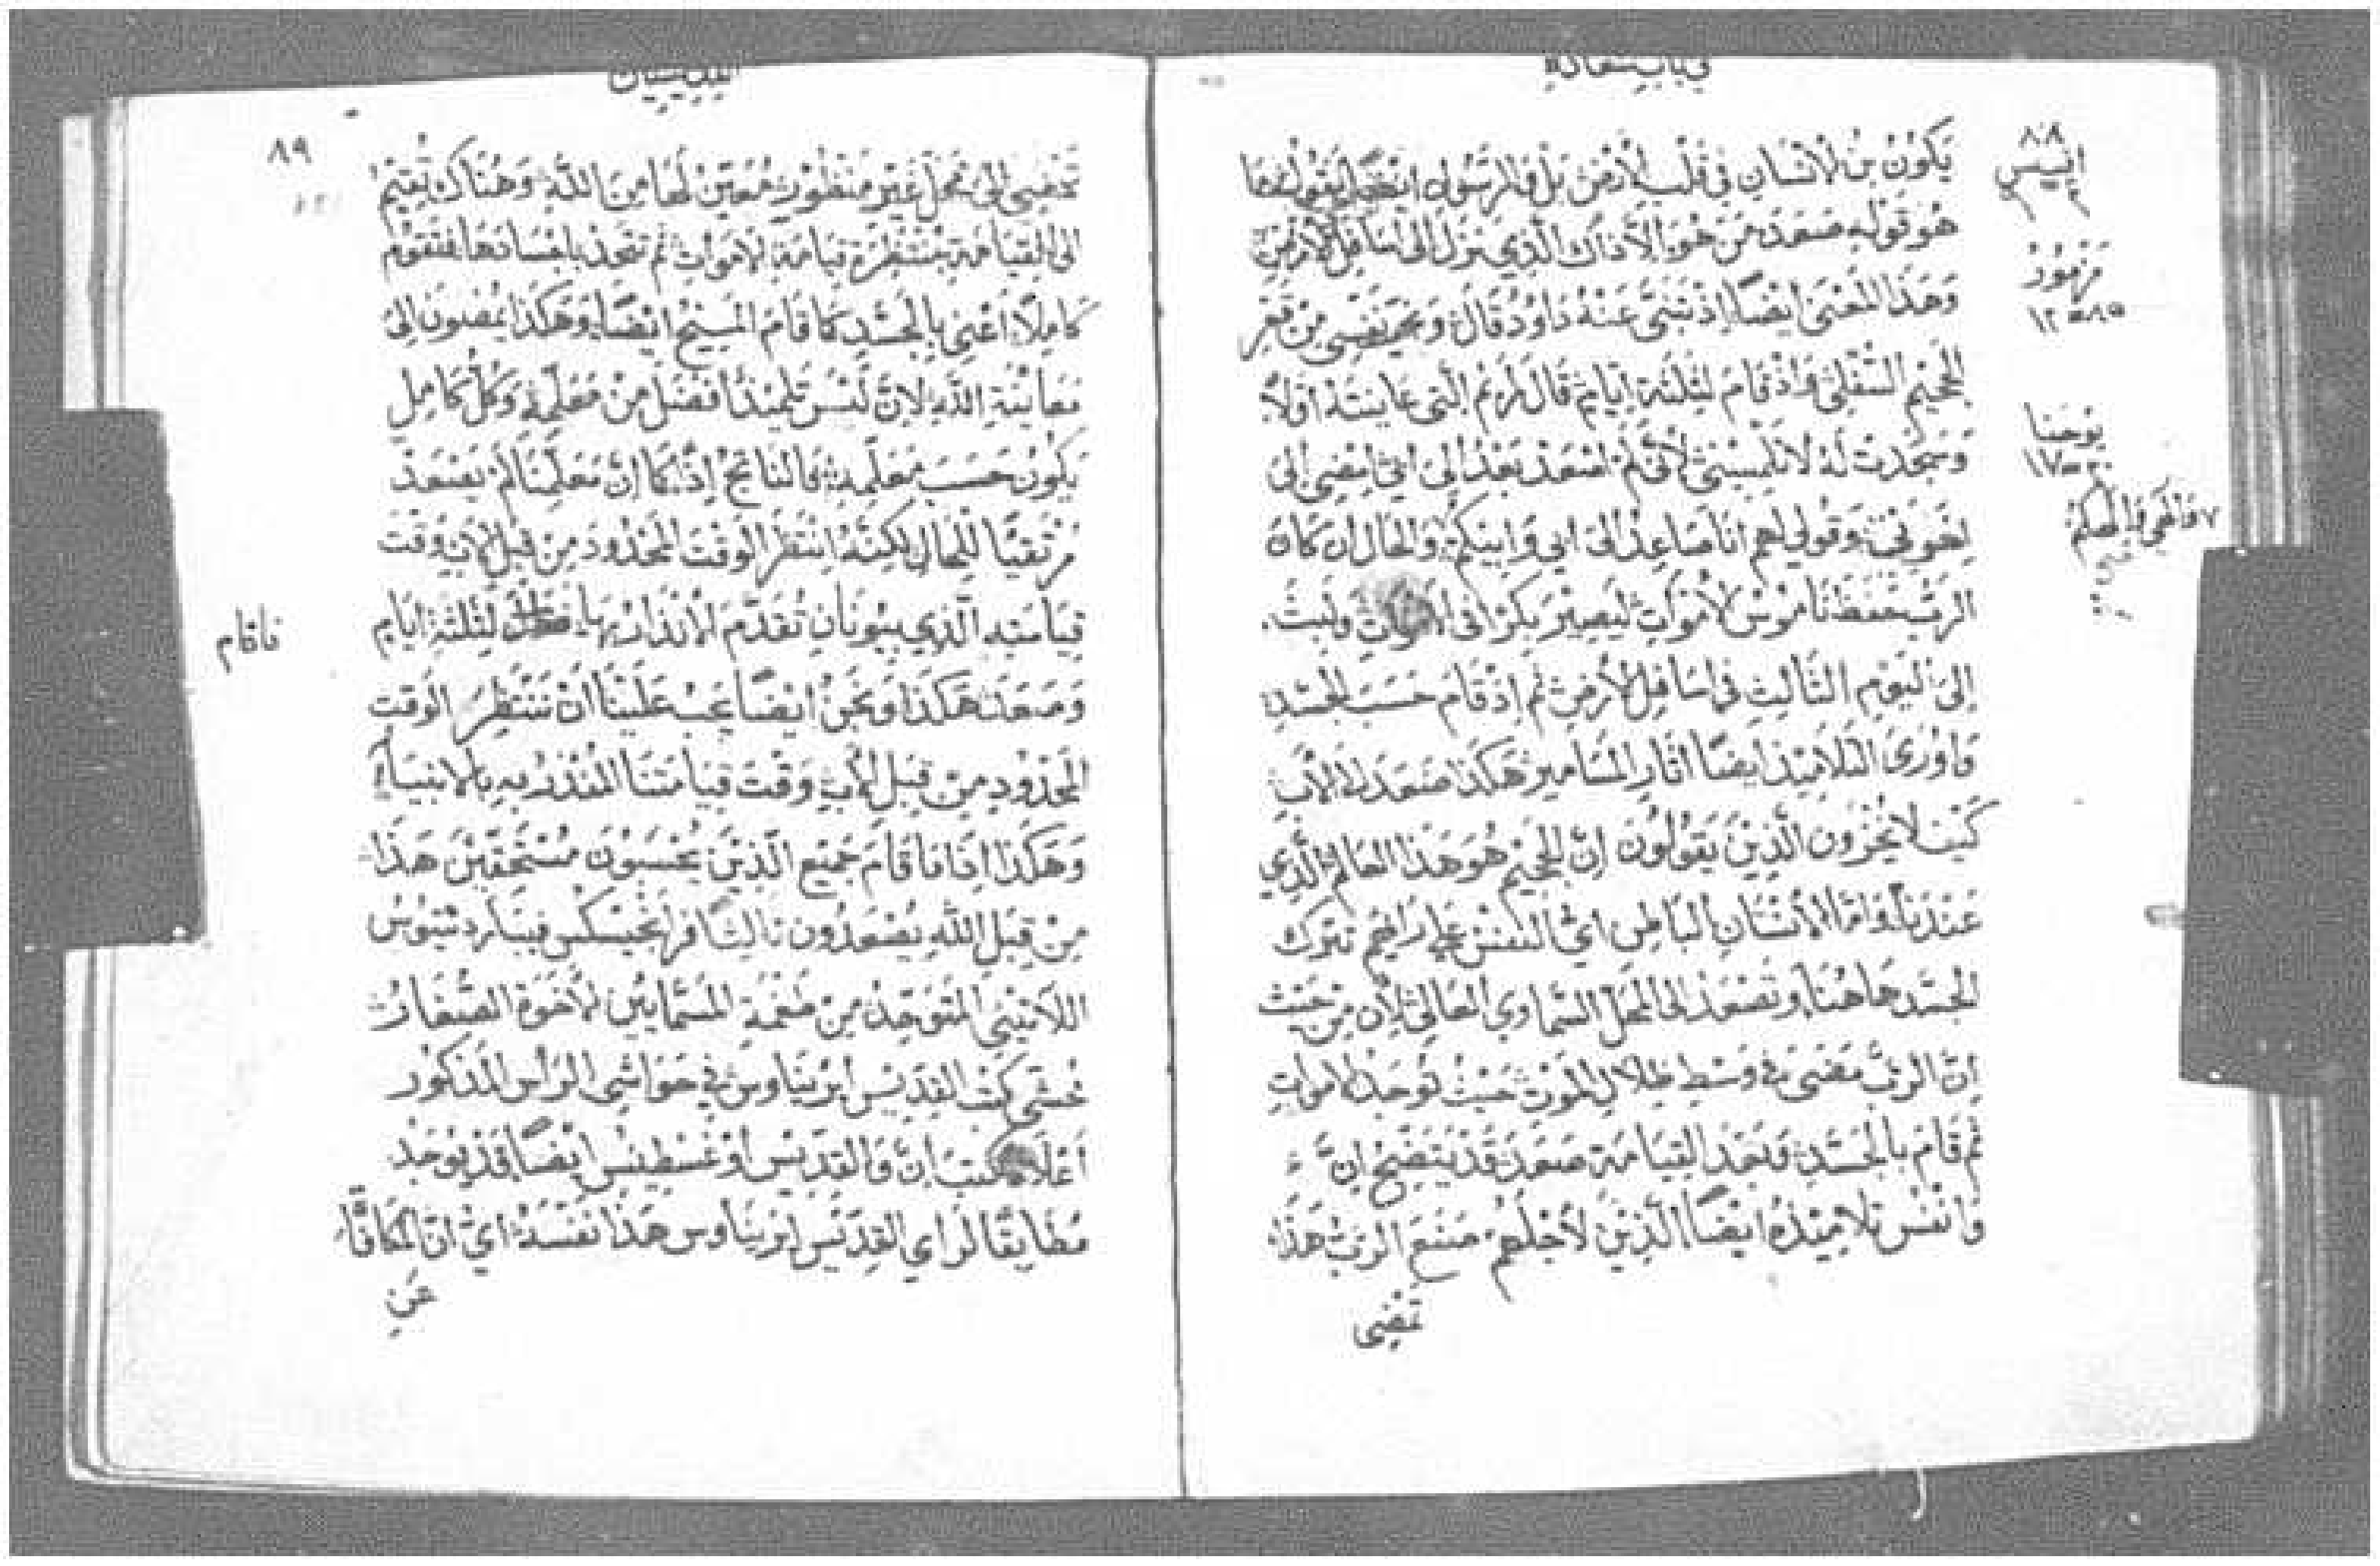 في باب سعادة
٨٨
يَكونُ بنُ الأنسَانِ في قَلبِ الأرضِ بَل والرسُول ايضًا يقُول مَا
هُوَ قَوله صَعَدَ مَن هُوَ الَّا ذاك الَّذي نزَل الى اسَافِل الأرضِ
وَهَذَا المَعنَى ايضًا اذ تنبَّى عَنهُ دَاوُد قَالَ وَنجَّى نفسِى مِن قعر
الجَحِيم السُّفلى وَاذ قَامَ لثلثة ايّام قَالَ لمريم الّتى عَاينتهُ أوّلاً
وَسَجَدت لَهُ لا تلمِسِينى لأنّى لم اصعَد بَعد الى ابى امضِى الى
اِخوَتى وَقُولى لهم انا صَاعِد الى ابى وَابِيكم وَالحَال ان كَانَ
الرَبّ حَفظ نَامُوسَ الأموَات ليَصِيرَ بكرًا فى الاموات وَلبثَ
إلىَ اليَوم الثَّالِث فى اسَافِل الأرضِ ثم اِذ قَامَ حَسَبَ الجسَد
وَاورَى التلامِيذ ايضًا اثار المسَامِير هَكذا صَعَدَ الى الأب
كَيفَ لا يُخزون الَّذِينَ يَقُولُونَ انّ الجَحِيم هُوَ هَذا العَالم الَّذِي
عندنا وَامّا الأنسَان البَاطِن اى النَفس على رَايهم تترك
الجسَد هَاهُنا وَتصعَد الى المحَل السّماوى العَالى لأن مِن حَيث
انّ الربّ مَضَى فى وَسَطِ ظِلالِ المَوت حَيثُ تُوجَد الاموات
ثم قَامَ بالجَسَد وَبَعد القِيَامَة صَعَدَ قد يتضِحُ انّ
وَانفسَ تلامِيذهُ ايضًا الّذِينَ لأجلهُم صَنعَ الربّ هَذا
تمضِى
افسس
٤
مَزمُورُ
٨٥ـ١٢
يوحنا
٢٠ـ١٧
القديسين
٨٩
تمضِى الىَ مَحَل غير مَنظُور مُعَيّن لهَا مِنَ الله وَهُنَاك تقِيمُ
الى القيَامَة مُنتظِرة قيَامَة الأموَات ثم تتّحد باجسَادهَا فتقُوم
كَامِلاً اعنِى بِالجَسَد كَما قَامَ المَسِيح ايضًا وَهَكذا يمضون الىَ
مُعَاينَة الله لانّ ليسَ تلمِيذ افضَل مِن مُعَلّمِه وَكُلّ كَامِل
يَكُون حَسَبَ مُعَلّمِه فَالناتج اِذًا كما انّ مُعَلّمنَا لم يَصعَد
مُرتقيًا للحَال لكِنّهُ اِنتظَر الوَقتَ المَحدُود مِن قِبَل الأب وَقت
قِيَامَتِه الَّذِي بيُونان تقدّم الأنذار بهَا لثلثةِ ايَّام
وَصَعَد هَكَذا وَنحنُ ايضًا يجب عَلينَا أن ننتظِرَ الوَقتَ
المَحدُودِ مِن قِبَل الأب وَقت قِيَامَتنا المُنذَر به بالانبيَاء
وَهَكَذا اِذا مَا قَامَ جَمِيع الَّذِينَ يُحسَبُونَ مُستَحقّينَ هَذا
مِن قِبَل الله يصعَدُون ثالثا فرانجيسكس فيناردنتيوس
اللاتينى المتوَحّد مِن طغمَة المُسَمّايين الأخوَة الصّغار
محَشى كتب القِديس ايريناوس فى حوَاشِى الرَأس المَذكور
اعلاه كتبَ انّ وَالقديس اوغسطينس ايضًا قد يُوجَد
مطَابقًا لراي القِديس ايريناوس هَذا نفسَهُ اى ان المُكافَاة
عَن
فاقام